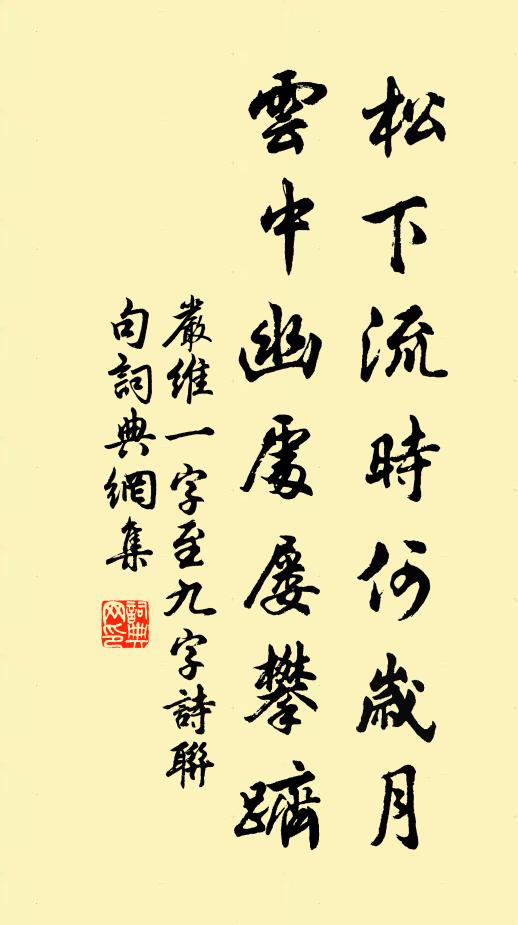 松下流時何歲月
雲中幽處屢攀躋
嚴維一字至九字詩聯
句詞典網集
詞典
网印